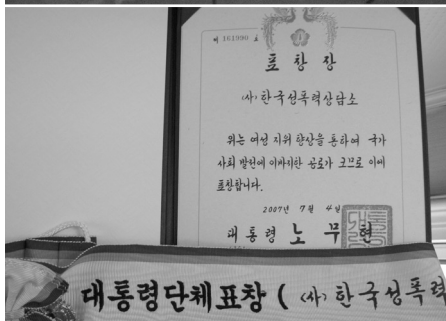 제 161990 호
표창장
(사)한국성폭력상담소
위는 여성 지위 향상을 통하여 국가
사회 발전에 이바지한 공로가 크므로 이에
표창합니다.
2007년 7월 4일
대통령 노무현
대통령단체표창 ( (사) 한국성폭력